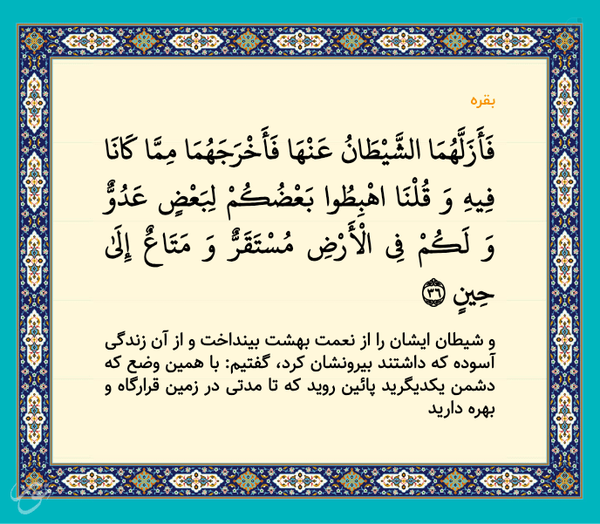 بقره
فَأَزَلَّهُمَا الشَّيْطَانُ عَنْهَا فَأَخْرَجَهُمَا مِمَّا كَانَا
فِيهِ وَ قُلْنَا اهْبِطُوا بَعْضُكُمْ لِبَعْضٍ عَدُوٌّ
وَ لَكُمْ فِی الْأَرْضِ مُسْتَقَرٌّ وَ مَتَاعٌ إِلَىٰ
حِينٍ ۳۶
و شیطان ایشان را از نعمت بهشت بینداخت و از آن زندگی
آسوده که داشتند بیرونشان کرد، گفتیم: با همین وضع که
دشمن یکدیگرید پائین روید که تا مدتی در زمین قرارگاه و
بهره دارید